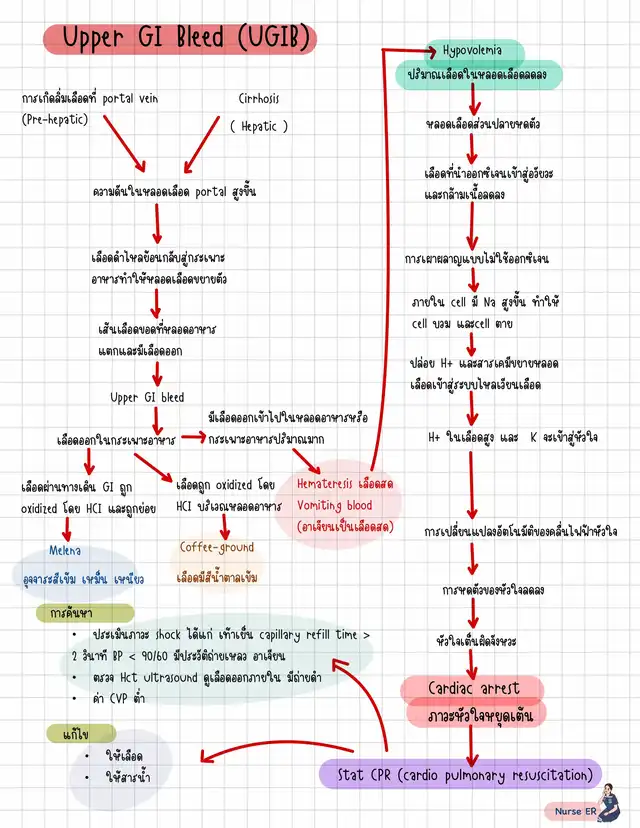 Upper GI Bleed (UGIB)
การเกิดลิ่มเลือดที่ portal vein
(Pre-hepatic)
Cirrhosis
( Hepatic )
ความดันในหลอดเลือด portal สูงขึ้น
เลือดดำไหลย้อนกลับสู่กระเพาะ
อาหารทำให้หลอดเลือดขยายตัว
เส้นเลือดขอดที่หลอดอาหาร
แตกและมีเลือดออก
Upper GI bleed
เลือดออกในกระเพาะอาหาร
มีเลือดออกเข้าไปในหลอดอาหารหรือ
กระเพาะอาหารปริมาณมาก
เลือดผ่านทางเดิน GI ถูก
oxidized โดย HCl และถูกย่อย
เลือดถูก oxidized โดย
HCl บริเวณหลอดอาหาร
Hemateresis เลือดสด
Vomiting blood
(อาเจียนเป็นเลือดสด)
Melena
อุจจาระสีเข้ม เหม็น เหนียว
Coffee-ground
เลือดมีสีน้ำตาลเข้ม
การค้นหา
• ประเมินภาวะ shock ได้แก่ เท้าเย็น capillary refill time >
2 วินาที BP < 90/60 มีประวัติถ่ายเหลว อาเจียน
• ตรวจ Hct ultrasound ดูเลือดออกภายใน มีถ่ายดำ
• ค่า CVP ต่ำ
แก้ไข
• ให้เลือด
• ให้สารน้ำ
Hypovolemia
ปริมาณเลือดในหลอดเลือดลดลง
หลอดเลือดส่วนปลายหดตัว
เลือดที่นำออกซิเจนเข้าสู่อวัยวะ
และกล้ามเนื้อลดลง
การเผาผลาญแบบไม่ใช้ออกซิเจน
ภายใน cell มี Na สูงขึ้น ทำให้
cell บวม และcell ตาย
ปล่อย H+ และสารเคมีขยายหลอด
เลือดเข้าสู่ระบบไหลเวียนเลือด
H+ ในเลือดสูง และ K จะเข้าสู่หัวใจ
การเปลี่ยนแปลงอัตโนมัติของคลื่นไฟฟ้าหัวใจ
การหดตัวของหัวใจลดลง
หัวใจเต้นผิดจังหวะ
Cardiac arrest
ภาวะหัวใจหยุดเต้น
Stat CPR (cardio pulmonary resuscitation)
Nurse ER